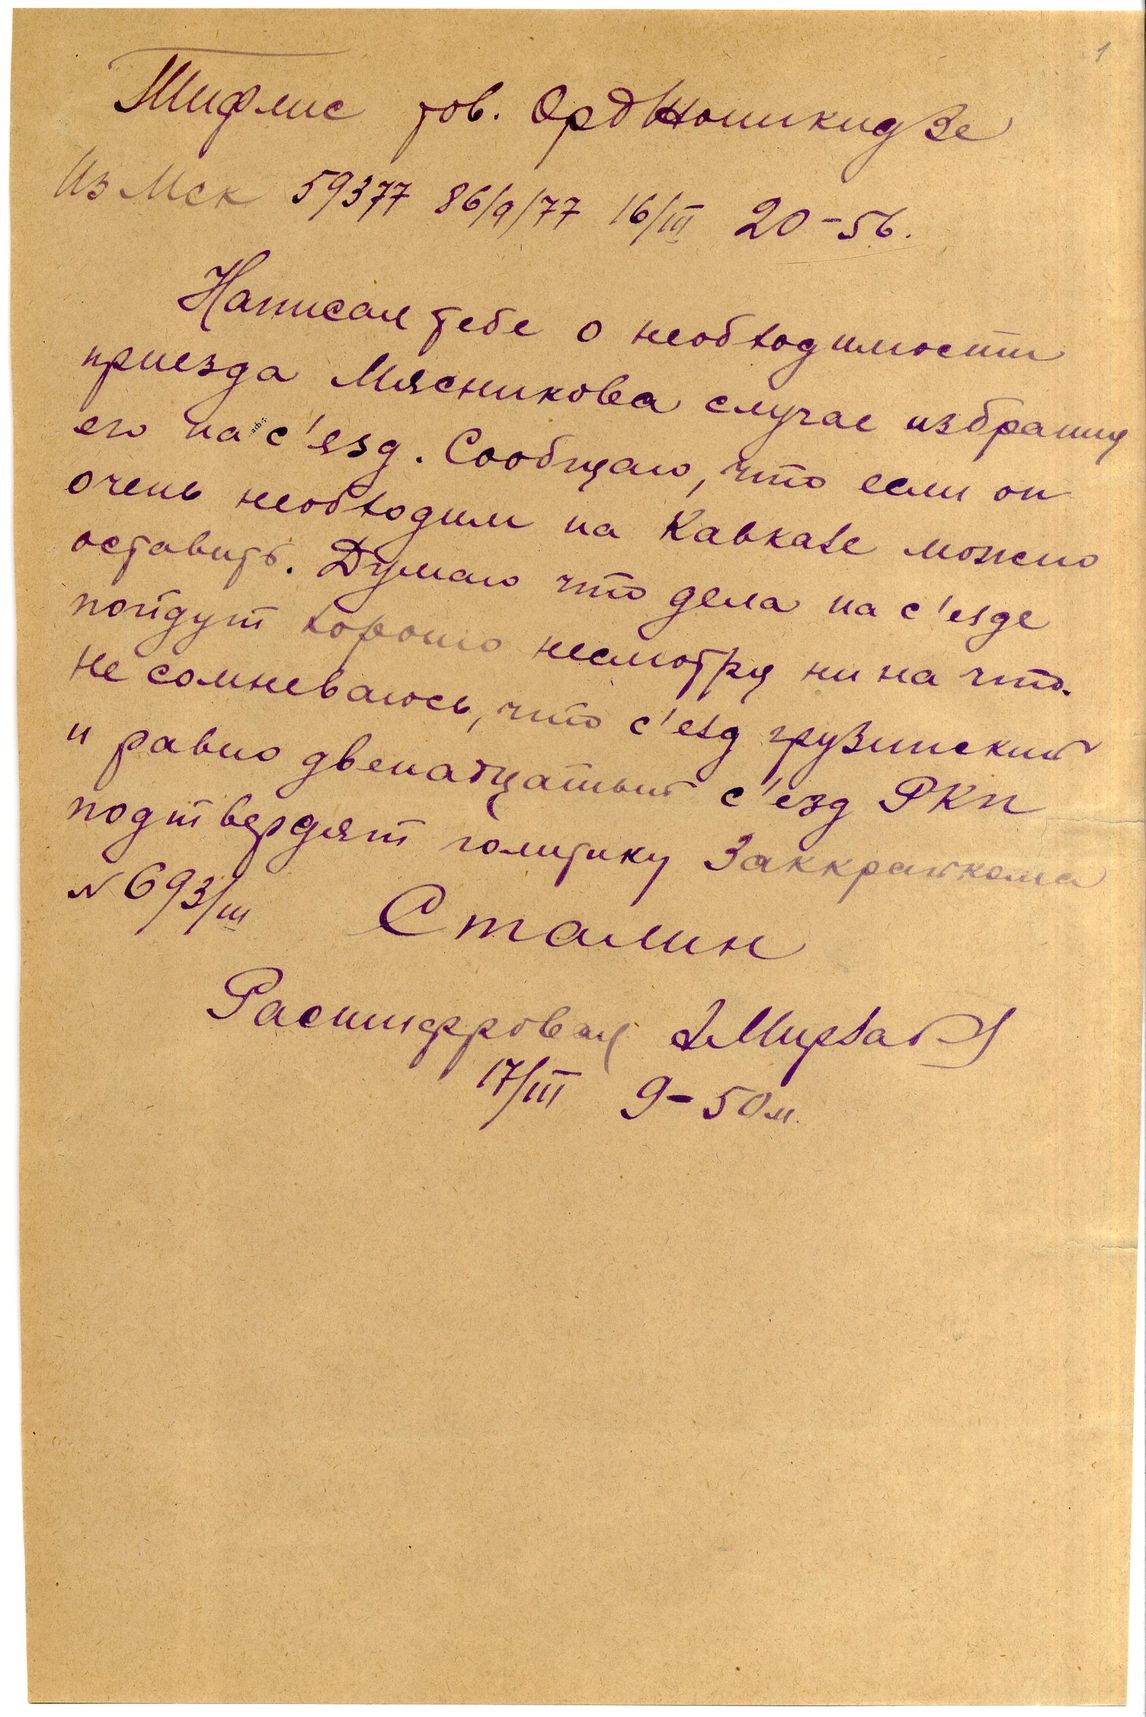 1
Тифлис тов. Орджоникидзе
Из Мск 59377 86/9/77 16/III 20-56.
Написал тебе о необходимости
приезда Мясникова случае избрания
его на с'езд. Сообщаю, что если он
очень необходим на Кавказе можно
оставить. Думаю что дела на с'езде
пойдут хорошо несмотря ни на что.
Не сомневаюсь, что с'езд грузинский
и равно двенадцатый с'езд РКП
подтвердят политику Заккрайкома
N 693/III Сталин
Расшифровал
17/III 9-50 м.